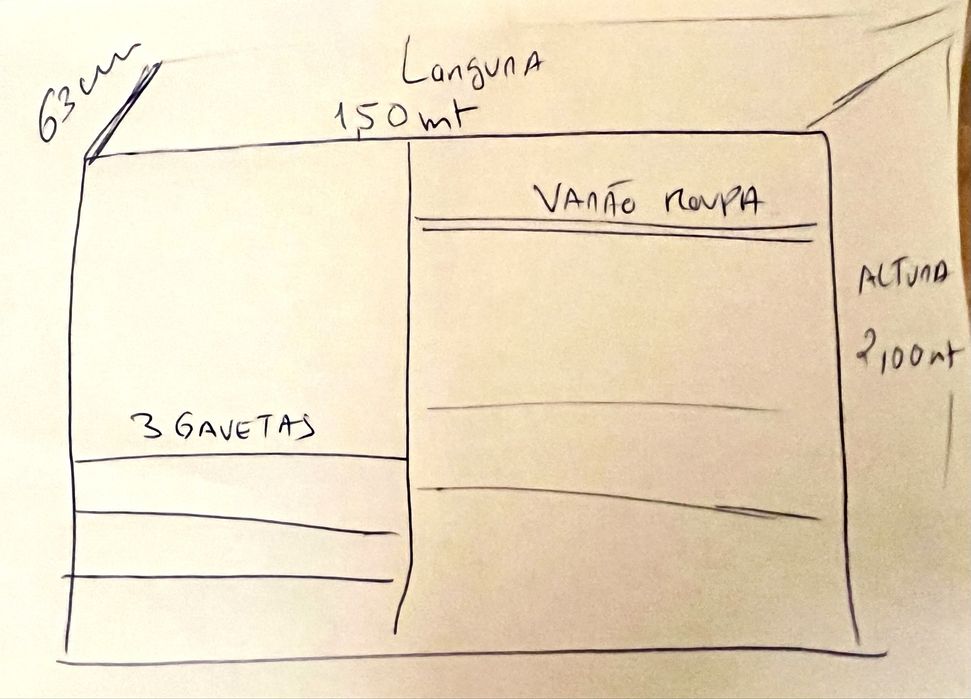 63cm
Largura
1,50 mt
VARÃO ROUPA
ALTURA
2,100 mt
3 GAVETAS